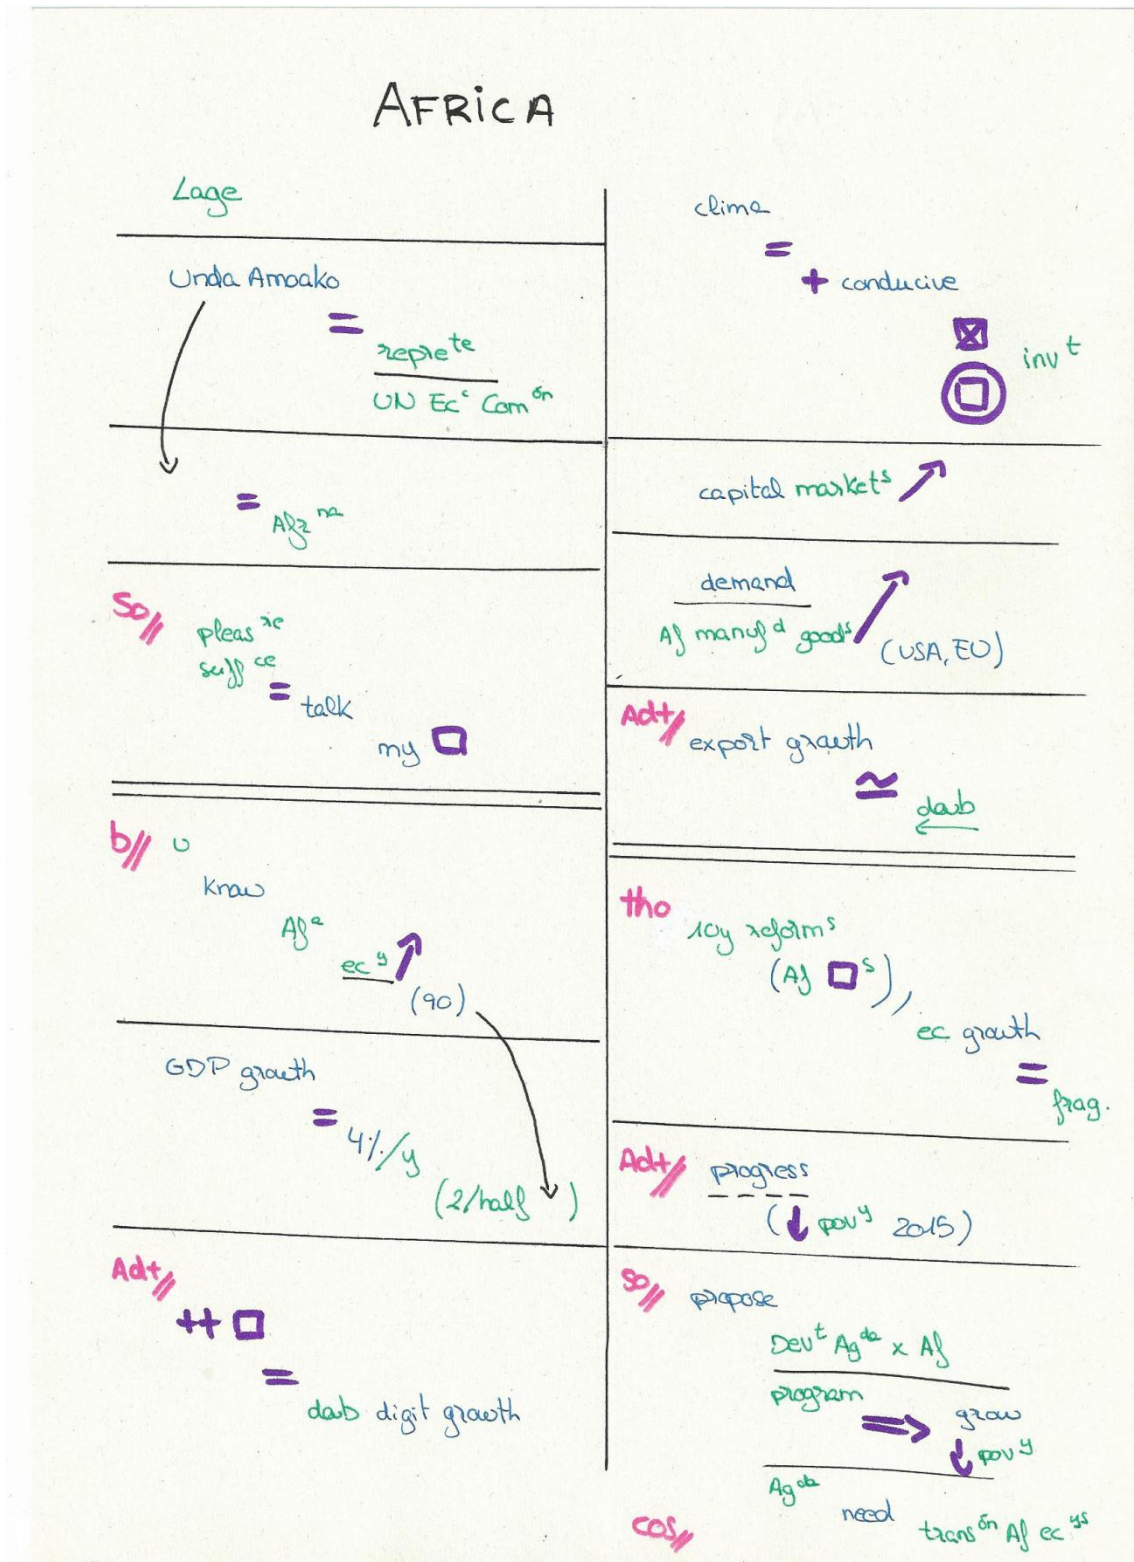 AFRICA
Lage
Unda Amoako
=
repre^te
UN Ec^c Com^ón
= Afr^na
So// pleas^re
suff^ce
= talk
my □
b// U
know
Af^a
ec^y ↗
(90)
GDP growth
= 4%/y
(2/half ↓)
Ad+//
++ □
=
doub digit growth
clima
=
+ conducive
inv^t
capital market^s ↗
demand
Af manuf^d good^s ↗
(USA, EU)
Ad+// export growth
≅
doub
tho 10y reform^s
(Af □^s),
ec growth
=
frag.
Ad+// progress
(↓ pov^y 2015)
So// propose
Dev^t Ag^da x Af
program ⇒ grow
↓ pov^y
Ag^da need trans^ón Af ec^ys
cos//